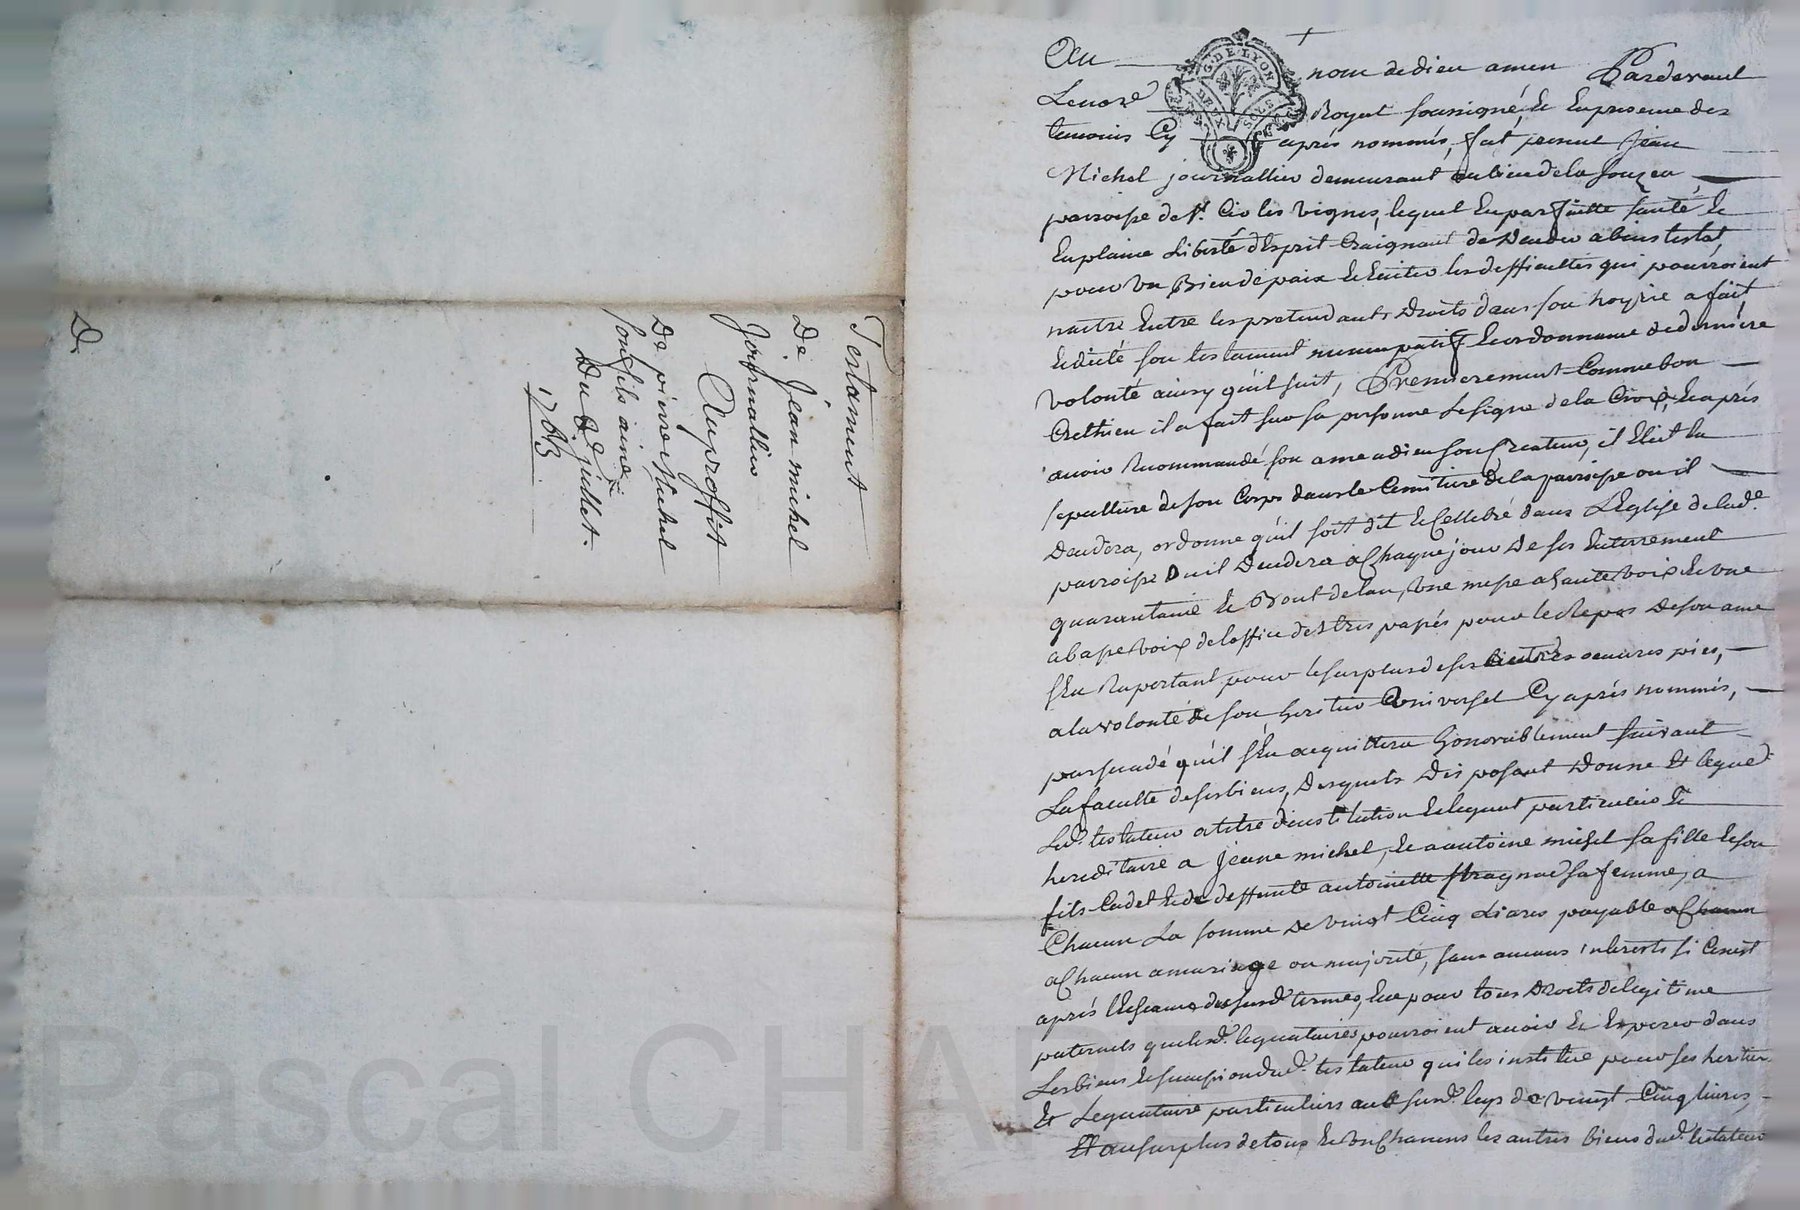 Testament
De Jean michel
Journallier
Auproffit
De pierre Michel
son fils ainé
Du 8e Juillet.
1763
D.
G. DE LYON
DEUX SOLS
Au nom de dieu amen Pardevant
Lenore Royal soussigné, Et En presence des
temoins Cy après nommés, fut present Jean
Michel journallier demeurant au lieu de la
parroisse de St. Cir les vignes, lequel En parfaitte santé, Et
En plaine Liberté d'Esprit Craignant de deceder abintestat,
pour un Bien de paix Et Eviter les difficultés qui pourroient
naitre Entre les pretendants Droits dans son hoyrie a fait
Et dicté son testament nuncupatif Et ordonnance de derniere
volonté ainsy qu'il suit, Premierement Comme bon
Crethien il a fait sur sa personne Le signe de la Croix, Et après
avoir Recommandé son ame a dieu son Createur, il Elit la
sepulture de son Corps dans le Cemitiere de la parroisse ou il
Decedera, ordonne qu'il soit dit Et Cellebré dans L'Eglise de lad.e
parroisse D'ou il Decedera a Chaque jour De ses Enterrement
quarantaine Et Bout de lan, une messe a haute voix Et une
a basse voix de loffice des trepassés pour le Repos De son ame
s'En Raportant pour le surplus de ses oeuvres pies,
a la volonté de son heritier Universel Cy après nommés,
persuadé qu'il s'En acquittera honorablement suivant
La faculté de ses biens, Desquels Disposant Donne Et legue
Led. testateur a titre d'institution Et legat particulier Et
hereditaire a Jeane michel, Et a antoine michel sa fille Et son
fils Cadet Et de deffunte antoinette sa femme, a
Chacun La somme de vingt Cinq Livres payable a Chacun
a Chacun a mariage ou majorité, sans aucuns interests si Ce n'est
après l'Echeance des susd. termes, Et ce pour tous Droits de legitime
paternels que lesd. legataires pourroient avoir Et Esperer dans
Les biens Et succession dud. testateur qui les institue pour ses heritiers
Et Legataire particuliers aud. susd. legs de vingt Cinq livres,
Et au surplus de tous Et un Chacuns les autres biens dud. testateur
Pascal